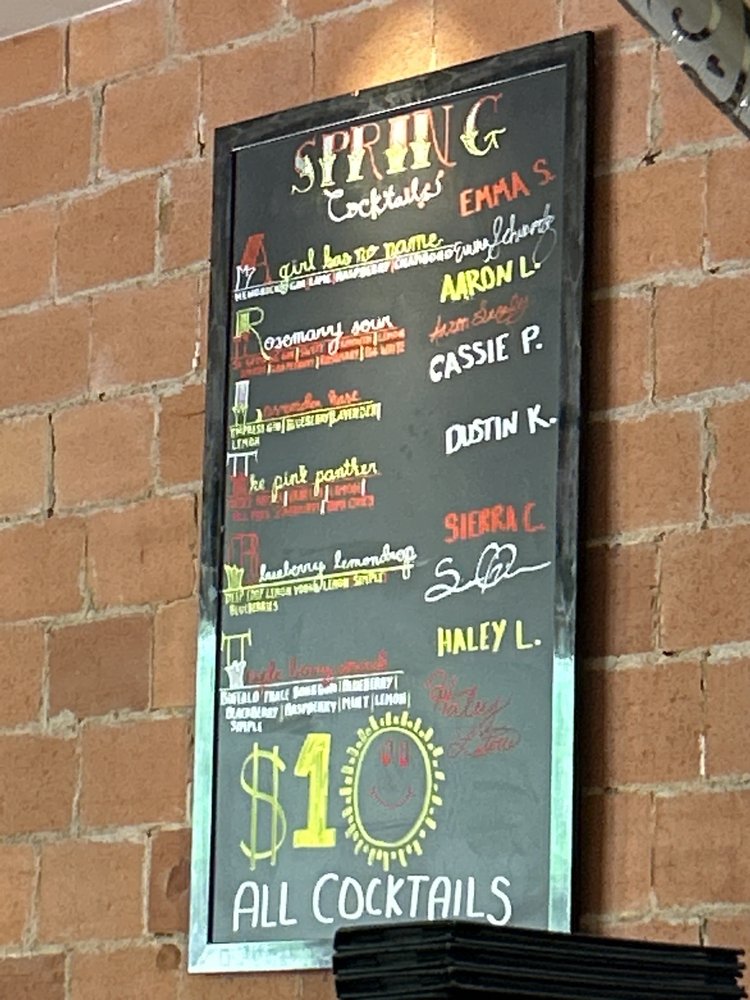 SPRING
Cocktails
EMMA S.
A girl has no name
HENDRICKS GIN|LIME|RASPBERRY|CHAMBORD
AARON L.
Rosemary sour
CASSIE P.
Lavender haze
EMPRESS GIN|BLUEBERRY|LAVENDER|
LEMON
DUSTIN K.
The pink panther
SIERRA C.
Blueberry lemondrop
DEEP EDDY LEMON VODKA|LEMON|SIMPLE|
BLUEBERRIES
HALEY L.
Triple berry smash
BUFFALO TRACE BOURBON|BLUEBERRY|
BLACKBERRY|RASPBERRY|MINT|LEMON|
SIMPLE
Haley
$10
ALL COCKTAILS